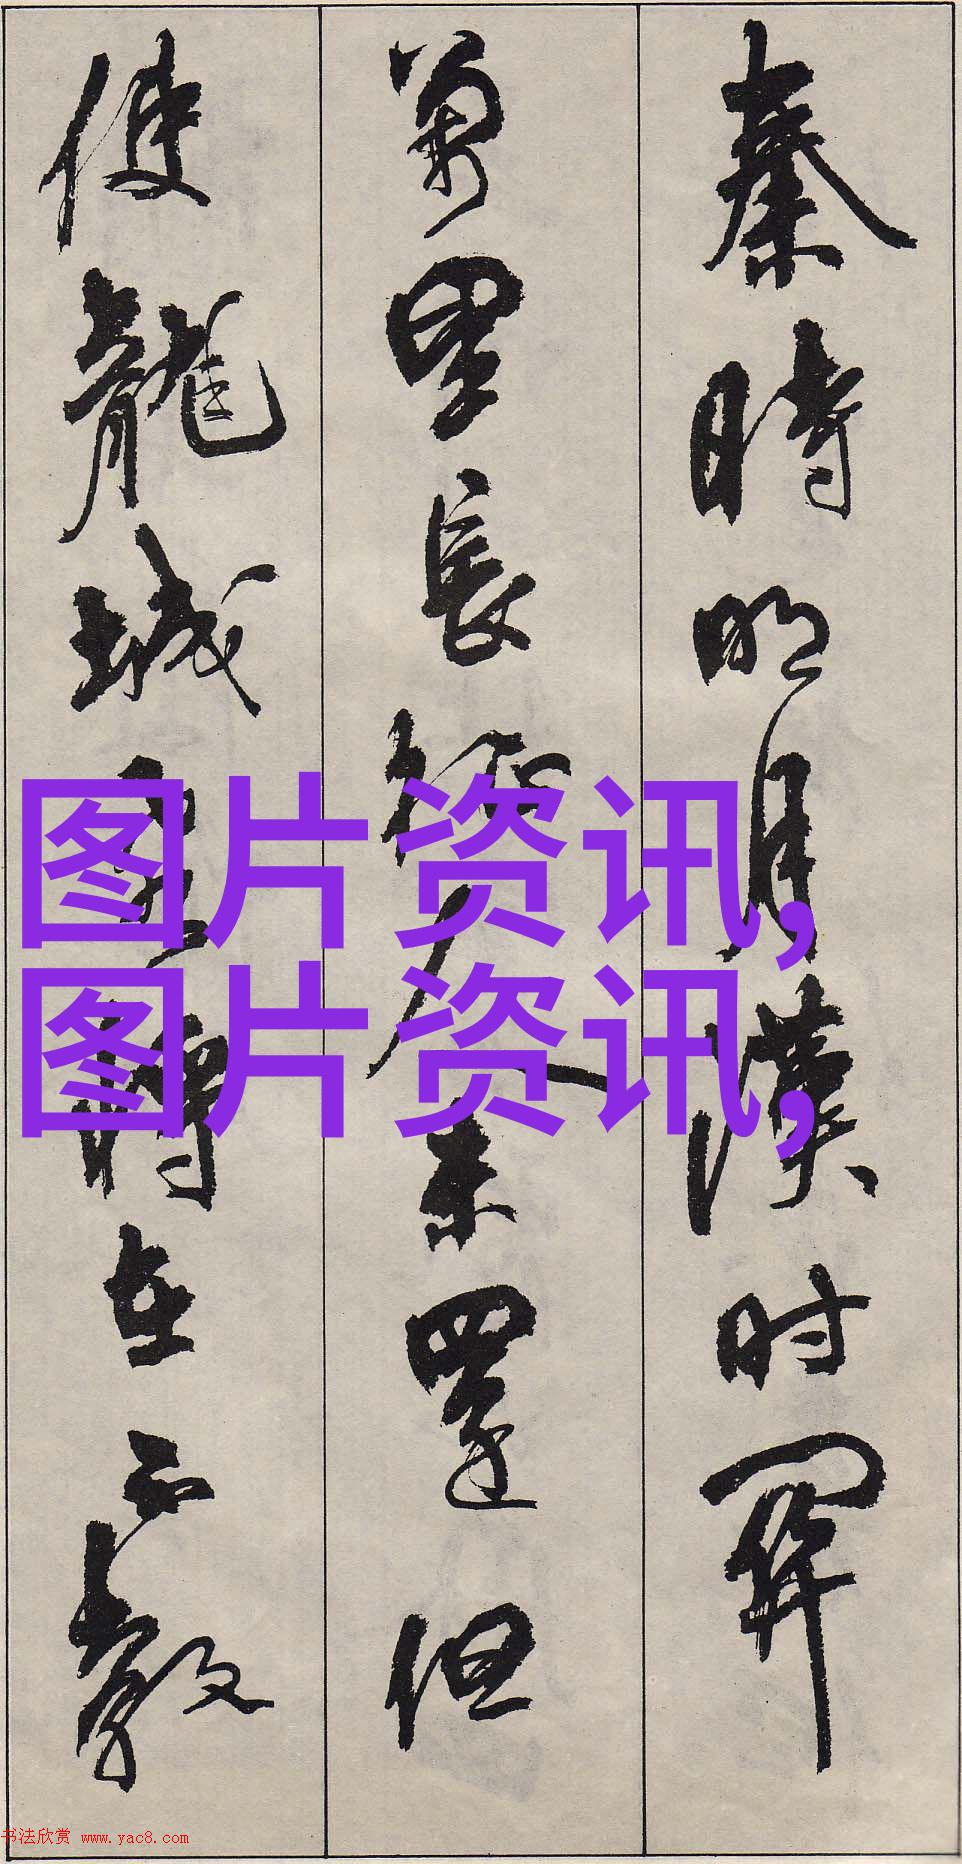 秦時明月漢时關
萬里長征人未還但
使龍城將在不教
图片资讯,
图片资讯,
书法欣赏 www.yac8.com